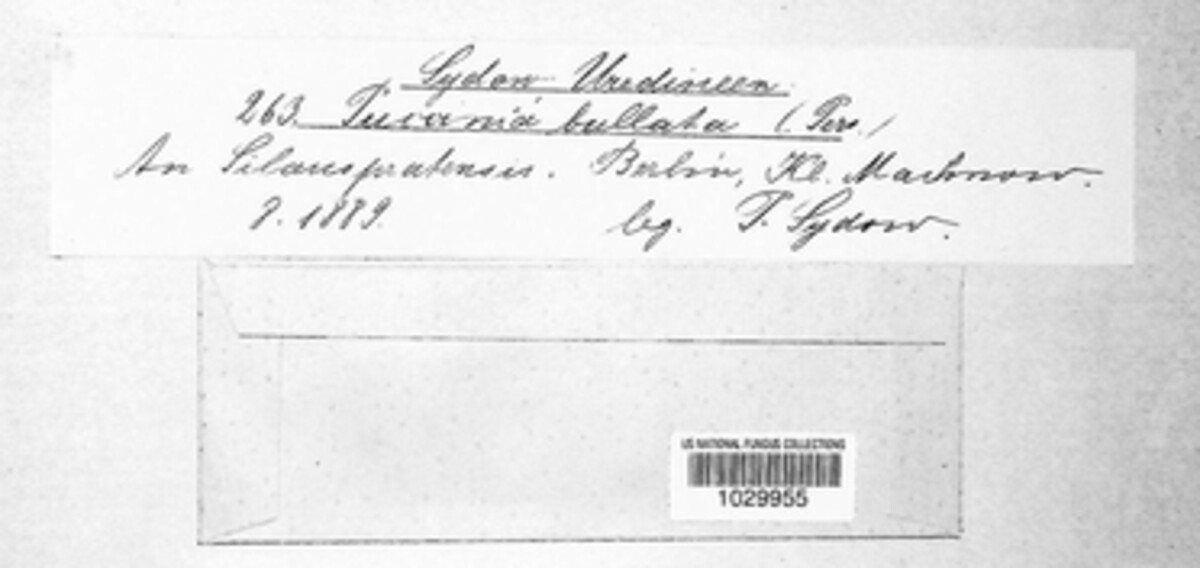 Sydow Uredineen.
263. Puccinia bullata (Pers.)
An Silaus pratensis. Berlin, Kl. Machnow.
8. 1889. leg. P. Sydow.
US NATIONAL FUNGUS COLLECTIONS
1029955